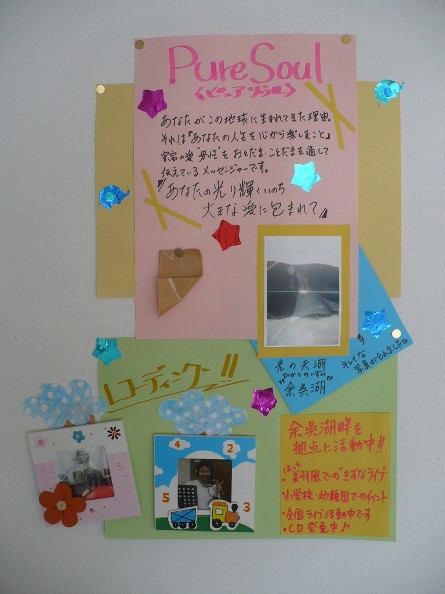 Pure Soul
<ピュアソウル>
あなたがこの地球に生まれてきた理由。
それは『あなたの人生を心から楽しむこと』
宇宙の愛"母性"をおとだま・ことだまを通して
伝えているメッセンジャーです。
『あなたの光り輝くいのち
大きな愛に包まれて』
光の天湖
"余呉湖"
キレイな
写真がとれました
レコーディング!!
余呉湖畔を
拠点に活動中!!
でのきずなライブ
・小学校・幼稚園でのイベント
・全国ライブ活動中です
・CD発売中♪
4
2
1
3
5